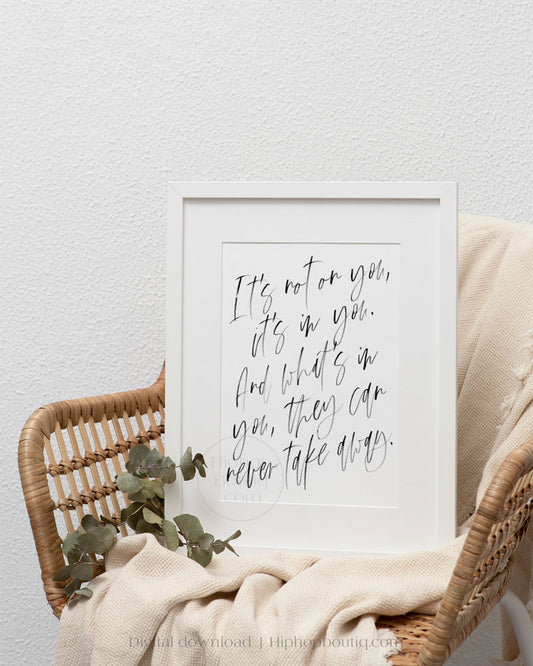 It's not on you,
it's in you.
And what's in
you, they can
never take away.
Hiphop
Boutiq
.com
Digital download | Hiphopboutiq.com